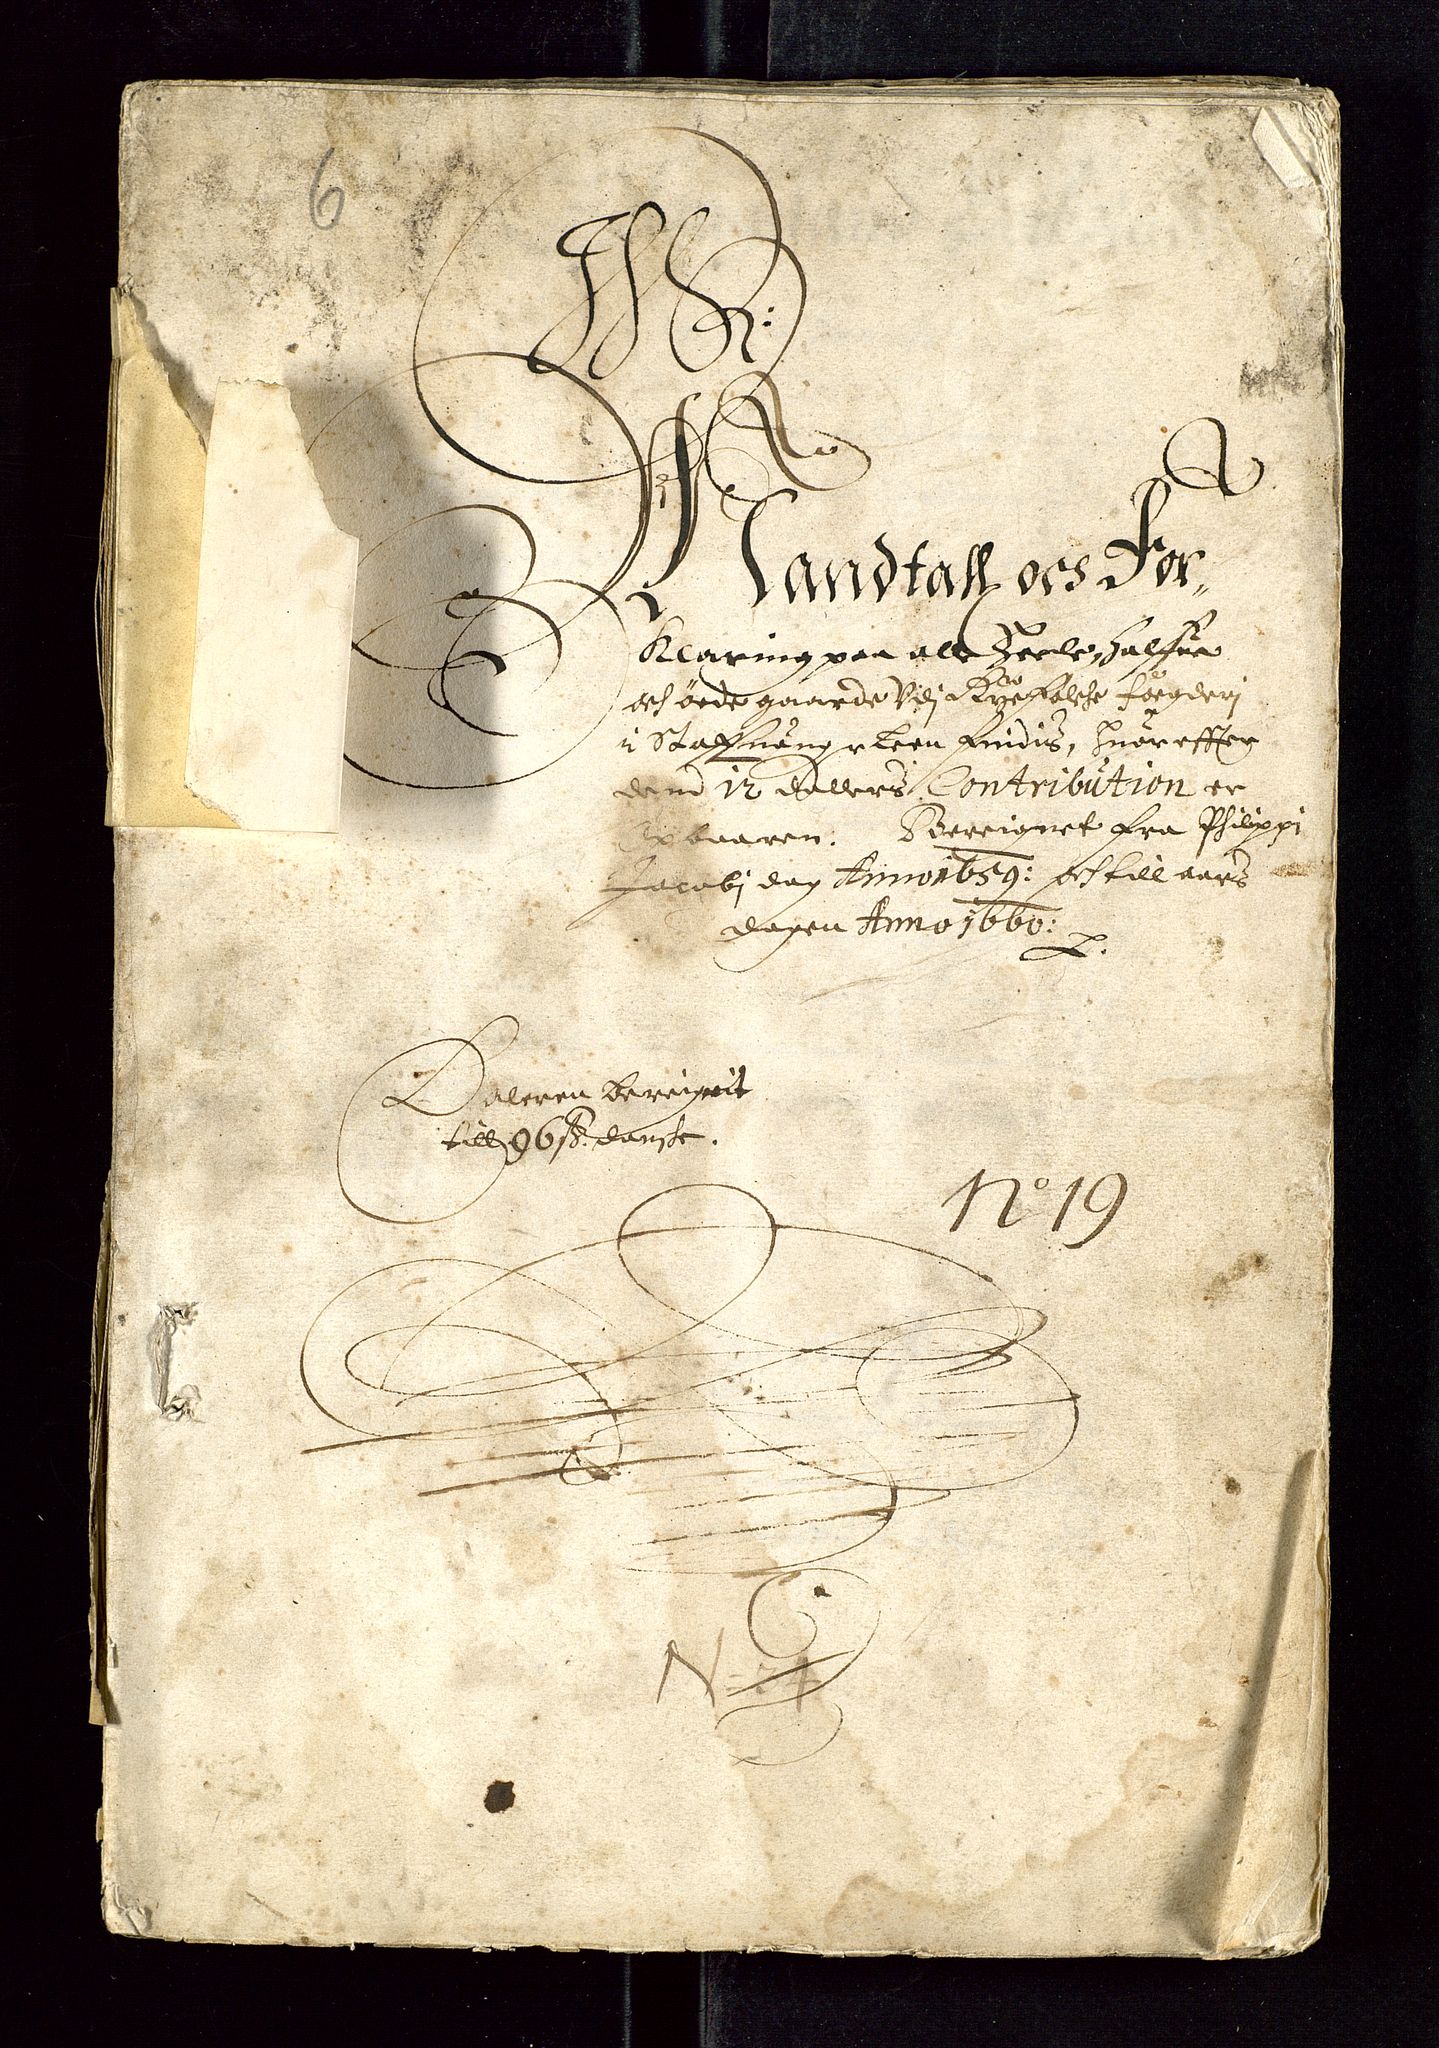 6
Mandtall och For„
Klaring paa alle Heele, halffue
och øede gaarde Vdj Ryefølche fougderj
i Staffuanger Leen findis, Huor effter
dend 12 dallers Contribution er
Opbaaren. Bereignet fra Philippi
Jacobj dag Anno 1659: och till aars
dagen Anno 1660:
Daleren bereignit
till 96 ß. danske.
No 19